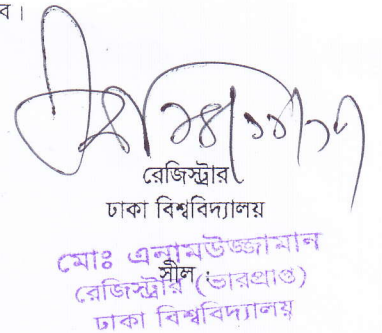 ব।
রেজিস্ট্রার
ঢাকা বিশ্ববিদ্যালয়
মোঃ এনামউজ্জামান
সীল :
রেজিস্ট্রার (ভারপ্রাপ্ত)
ঢাকা বিশ্ববিদ্যালয়